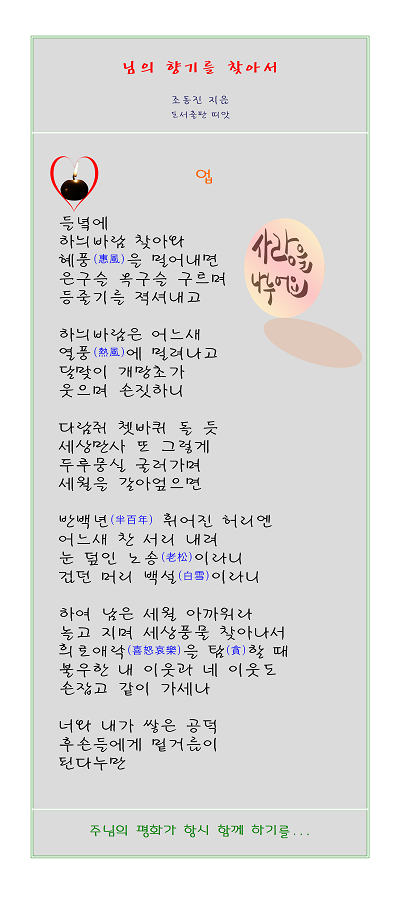 님의 향기를 찾아서
조동진 지음
도서출판 띠앗
업
들녘에
하늬바람 찾아와
혜풍(惠風)을 밀어내면
은구슬 옥구슬 구르며
등줄기를 적셔내고
하늬바람은 어느새
열풍(熱風)에 밀려나고
달맞이 개망초가
웃으며 손짓하니
다람쥐 쳇바퀴 돌 듯
세상만사 또 그렇게
두루뭉실 굴러가며
세월을 갈아엎으면
반백년(半百年) 휘어진 허리엔
어느새 찬 서리 내려
눈 덮인 노송(老松)이라니
검던 머리 백설(白雪)이라니
하여 남은 세월 아까워라
놀고 지며 세상풍물 찾아나서
희로애락(喜怒哀樂)을 탐(貪)할 때
불우한 내 이웃과 네 이웃도
손잡고 같이 가세나
너와 내가 쌓은 공덕
후손들에게 밑거름이
된다누만
사랑을
나누어요
주님의 평화가 항시 함께 하기를...